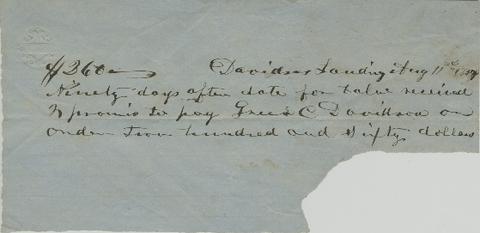 $260— Davidson Landing Aug 11th
Ninety days after date for value received
I promis to pay Green C Davidson or
order Two hundred and Sixty dollars